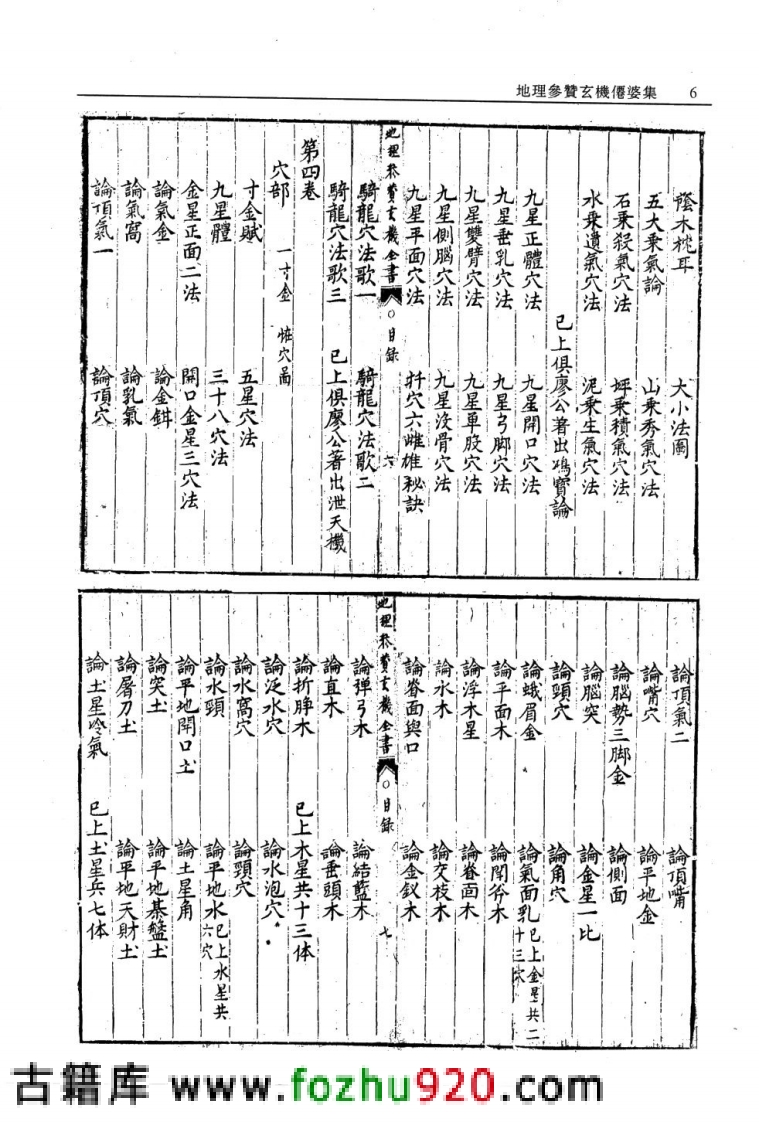 地理參贊玄機僊婆集 6
蔭木枕耳 大小法圖
五大乘氣論 山乘秀氣穴法
石乘殺氣穴法 坪乘積氣穴法
水乘遺氣穴法 泥乘生氣穴法
已上俱廖公著出鴻寶論
九星正體穴法 九星開口穴法
九星垂乳穴法 九星弓脚穴法
九星雙臂穴法 九星單股穴法
九星側腦穴法 九星沒骨穴法
九星平面穴法 扦穴六雌雄秘訣
地理參贊玄機全書 ○目錄 六
騎龍穴法歌一 騎龍穴法歌二
騎龍穴法歌三 已上俱廖公著出泄天機
第四卷
穴部 一寸金 恠穴啚
寸金賦 五星穴法
九星體 三十八穴法
金星正面二法 開口金星三穴法
論氣金 論金鉺
論氣窩 論乳氣
論頂氣一 論頂穴
論頂氣二 論頂嘴
論嘴穴 論平地金
論腦勢三脚金 論側面
論腦突 論金星一比
論頸穴 論角穴
論蛾眉金 論氣面乳 已上金星共二十三穴
論平面木 論開谷木
論浮木星 論眷面木
論水木 論交枝木
論眷面與口 論金釵木
地理參贊玄機全書 ○目錄 七
論彈弓木 論結藍木
論直木 論垂頭木
論折脖木 已上木星共十三体
論泛水穴 論水泡穴
論水窩穴 論頸穴
論水頸 論平地水 已上水星共六穴
論平地開口土 論土星角
論突土 論平地棊盤土
論屠刀土 論平地天財土
論土星冷氣 已上土星兵七体
古籍库 www.fozhu920.com